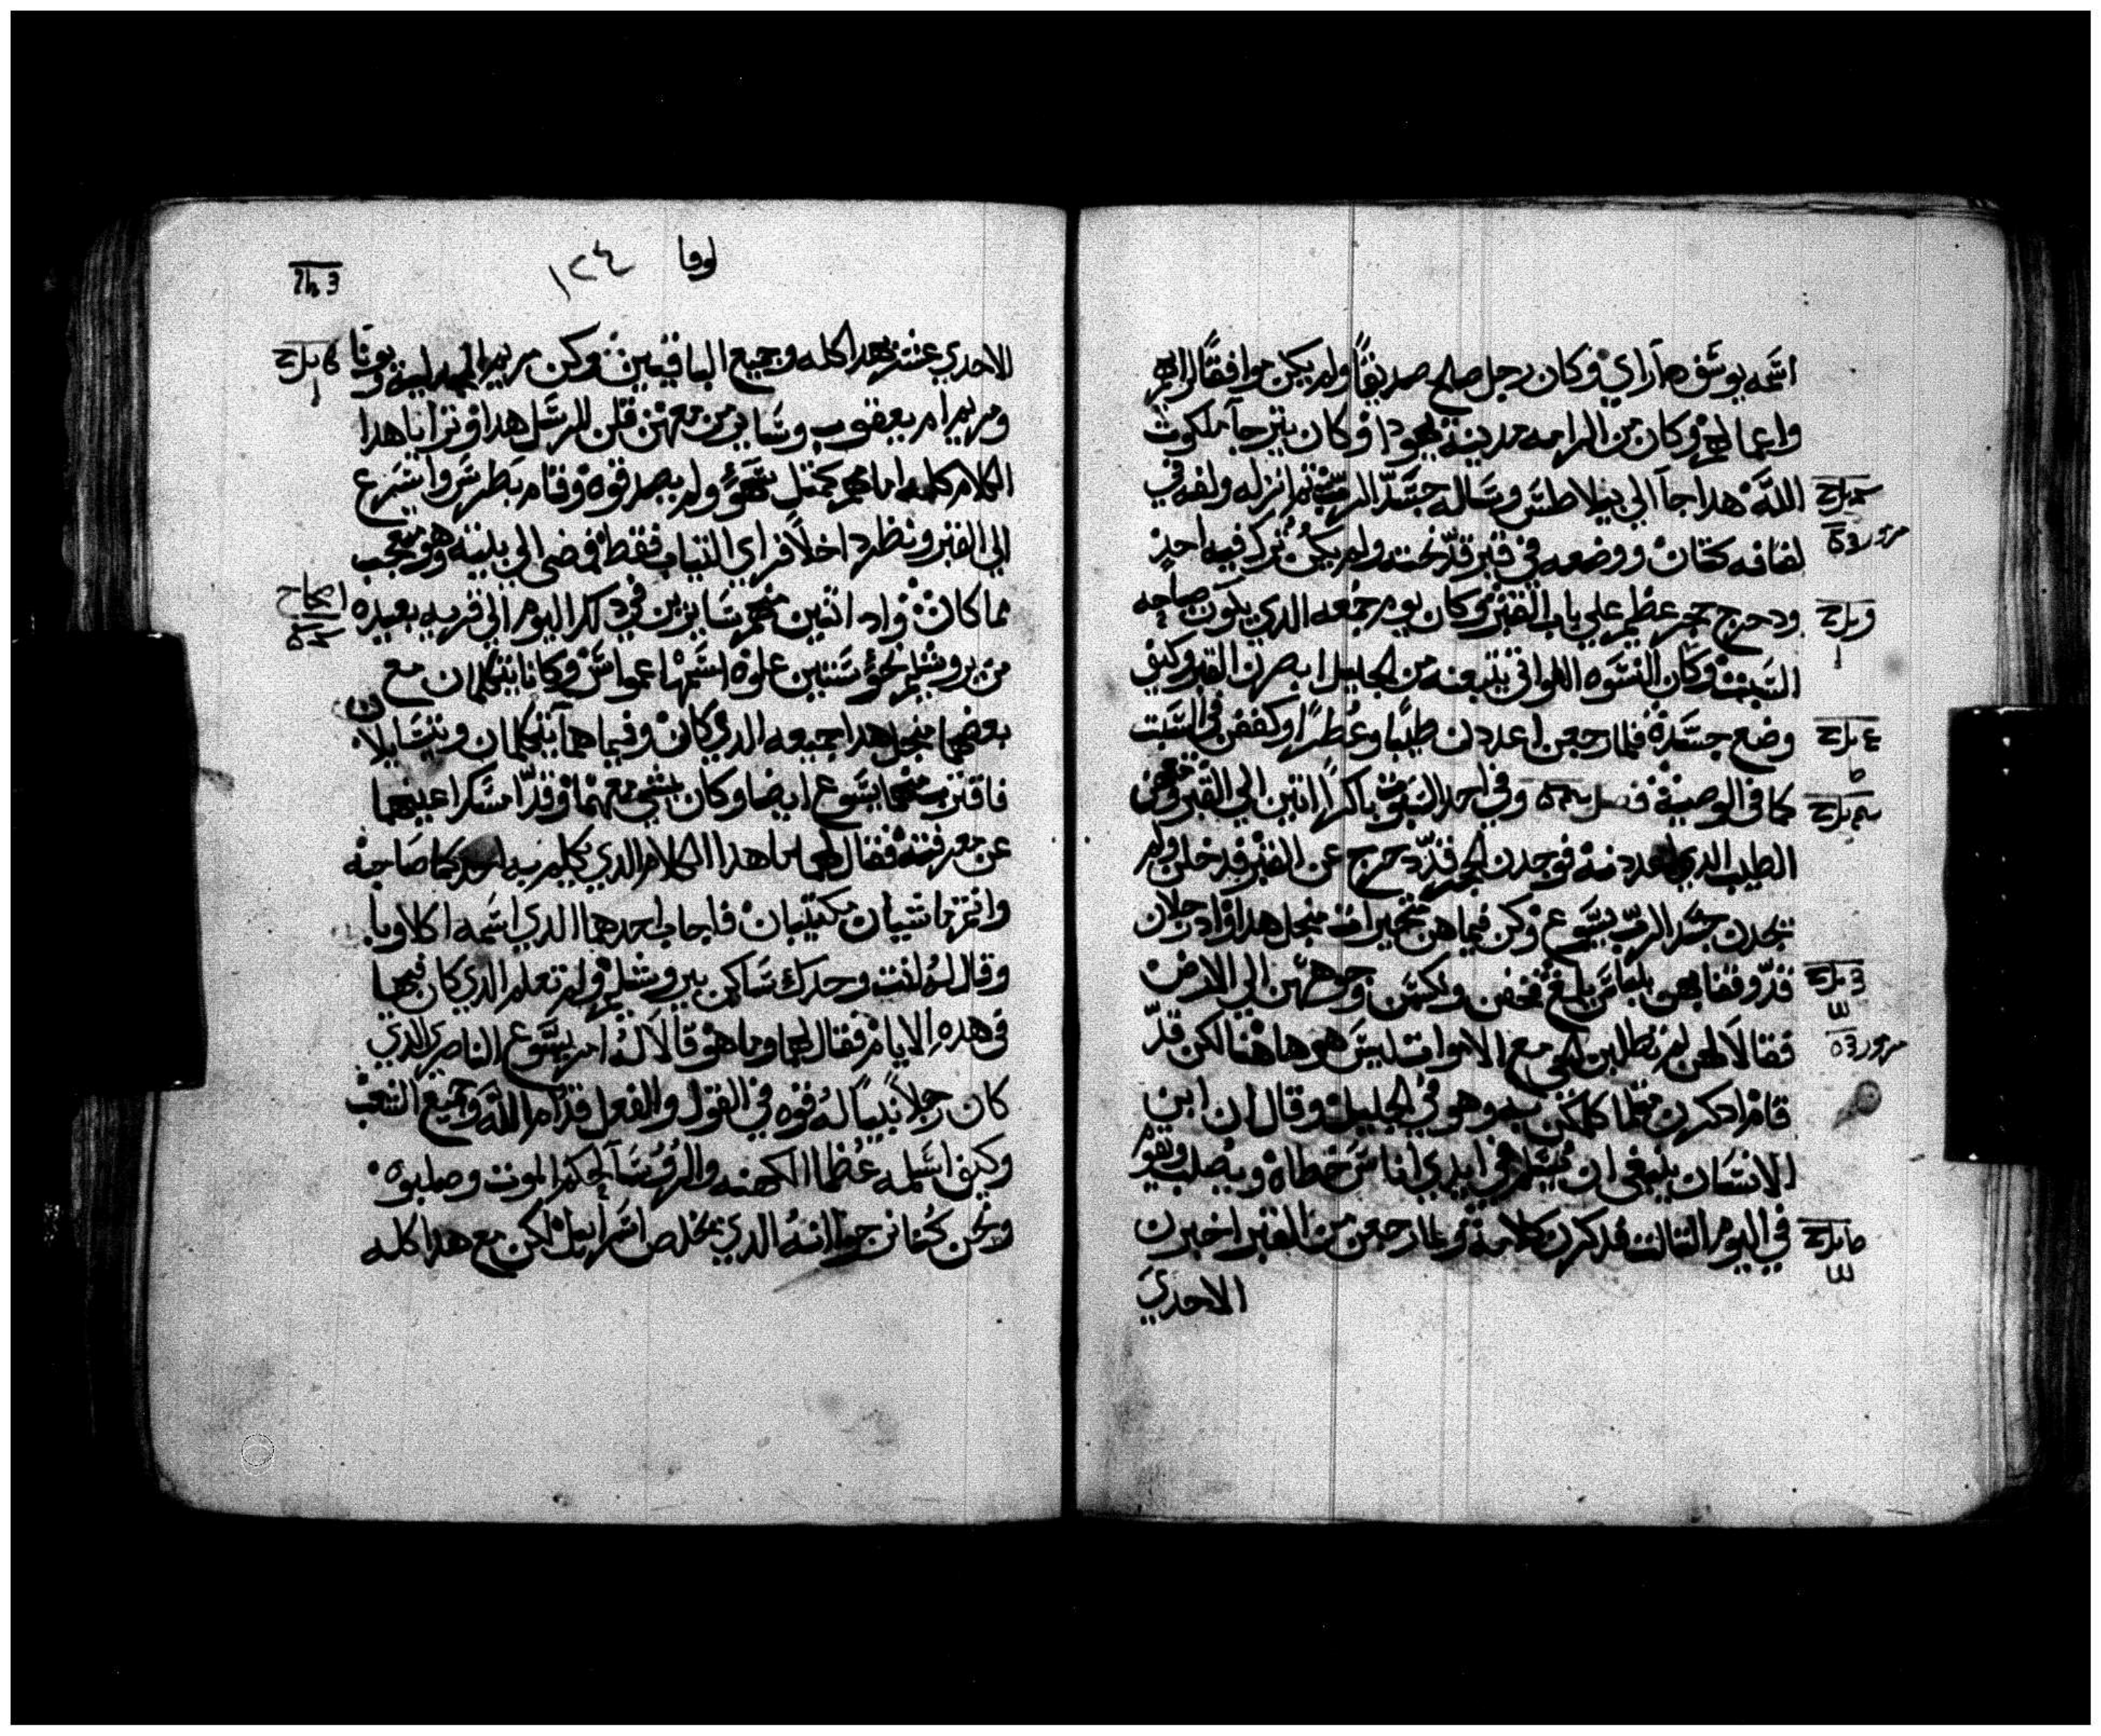 اسمه يوسف من اراي وكان رجل صالح صديقا ولم يكن موافقا لرايهم
واعمالهم وكان من الرامه مدينة يهودا وكان يترجا ملكوت
الله هدا جا الي بيلاطس وساله جسد الرب ثم انزله ولفه في
لفافه كتان ووضعه في قبر قد نحته ولم يكن ترك فيه احد
ودحرج حجر عظيم علي باب القبر وكان يوم جمعه الدي يكون صباحه
السبت وكان النسوه اللواتي يتبعنه من الجليل ابصرن القبر وكيف
وضع جسده فلما رجعن اعددن طيبا وعطرا وكففن في السبت
كما في الوصية فصل وفي احد السبوت باكرا اتين الي القبر
الطيب الدي اعددنه فوجدن الحجر قد دحرج عن القبر فدخلن ولم
يجدن جسد الرب يسوع وكن فيما هن متحيرات منجل هدا واد رجلان
قد وقفا بهن بلباس يلمع فخفن ونكسن وجوههن الي الارض
فقالا لهن لم تطلبن الحي مع الاموات ليس هو هاهنا لكن قد
قام ادكرن مثلما كلمكن به وهو في الجليل وقال ان ابن
الانسان ينبغي ان يسلم في ايدي اناس خطاه ويصلب ويقوم
في اليوم التالت فدكرن كلامه ولما رجعن من القبر اخبرن
الاحدي
لوقا ١٢٤
الاحدي عشر بهدا كله وجميع الباقيين وكن مريم المجدليه ويونا
ومريم ام يعقوب وساير من معهن قلن للرسل هدا وتراياهدا
الكلام كله امامهم كمثل شهو ولم يصدقوه وقام بطرس واسرع
الي القبر ونظر داخلا فراي التياب فقط فمضي الي بيته وهو متعجب
مما كان واد اثنين منهم سايرين في دلك اليوم الي قريه بعيده
من يروشليم نحو ستين غلوه اسمها عمواس وكانا يتكلمان مع
بعضهما منجل هدا جميعه الدي كان وفيما هما يتكلمان ويتسايلان
فاقترب منهما يسوع ايضا وكان يمشي معهما وقد امسك اعينهما
عن معرفته فقال لهما ما هدا الكلام الدي يكلم به احدكما صاحبه
وانتما تمشيان مكتيبان فاجاب احدهما الدي اسمه اكلاوبا
وقال له انت وحدك ساكن بيروشليم ولم تعلم الدي كان فيها
في هده الايام فقال لهما وما هو قالا له امر يسوع الناصري الدي
كان رجلا نبيا له قوه في القول والفعل قدام الله وجميع الشعب
وكيف اسلمه عظما الكهنه والروسا لحكم الموت وصلبوه
ونحن كنا نرجوا انه الدي يخلص اسراييل لكن مع هدا كله